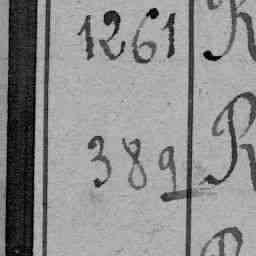 1261 R
389 R